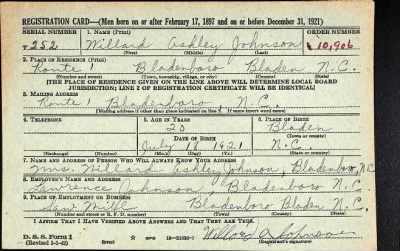 REGISTRATION CARD—(Men born on or after February 17, 1897 and on or before December 31, 1921)
SERIAL NUMBER 1. NAME (Print) ORDER NUMBER
252 Willard Ashley Johnson 10,906
(First) (Middle) (Last)
2. PLACE OF RESIDENCE (Print)
Route 1 Bladenboro Bladen N.C.
(Number and street) (Town, township, village, or city) (County) (State)
[THE PLACE OF RESIDENCE GIVEN ON THE LINE ABOVE WILL DETERMINE LOCAL BOARD
JURISDICTION; LINE 2 OF REGISTRATION CERTIFICATE WILL BE IDENTICAL]
3. MAILING ADDRESS
Route 1 Bladenboro, N.C.
[Mailing address if other than place indicated on line 2. If same insert word same]
4. TELEPHONE 5. AGE IN YEARS 6. PLACE OF BIRTH
20 Bladen
DATE OF BIRTH (Town or county)
July 18 1921 N.C.
(Exchange) (Number) (Mo.) (Day) (Yr.) (State or country)
7. NAME AND ADDRESS OF PERSON WHO WILL ALWAYS KNOW YOUR ADDRESS
Mrs. Willard Ashley Johnson, Bladenboro, N.C.
8. EMPLOYER'S NAME AND ADDRESS
Lawrence Johnson, Bladenboro N.C.
9. PLACE OF EMPLOYMENT OR BUSINESS
Mill Bladenboro Bladen N.C.
(Number and street or R. F. D. number) (Town) (County) (State)
I AFFIRM THAT I HAVE VERIFIED ABOVE ANSWERS AND THAT THEY ARE TRUE.
D. S. S. Form 1
(Revised 1-5-42) GPO Willard A Johnson
(Registrant's signature)